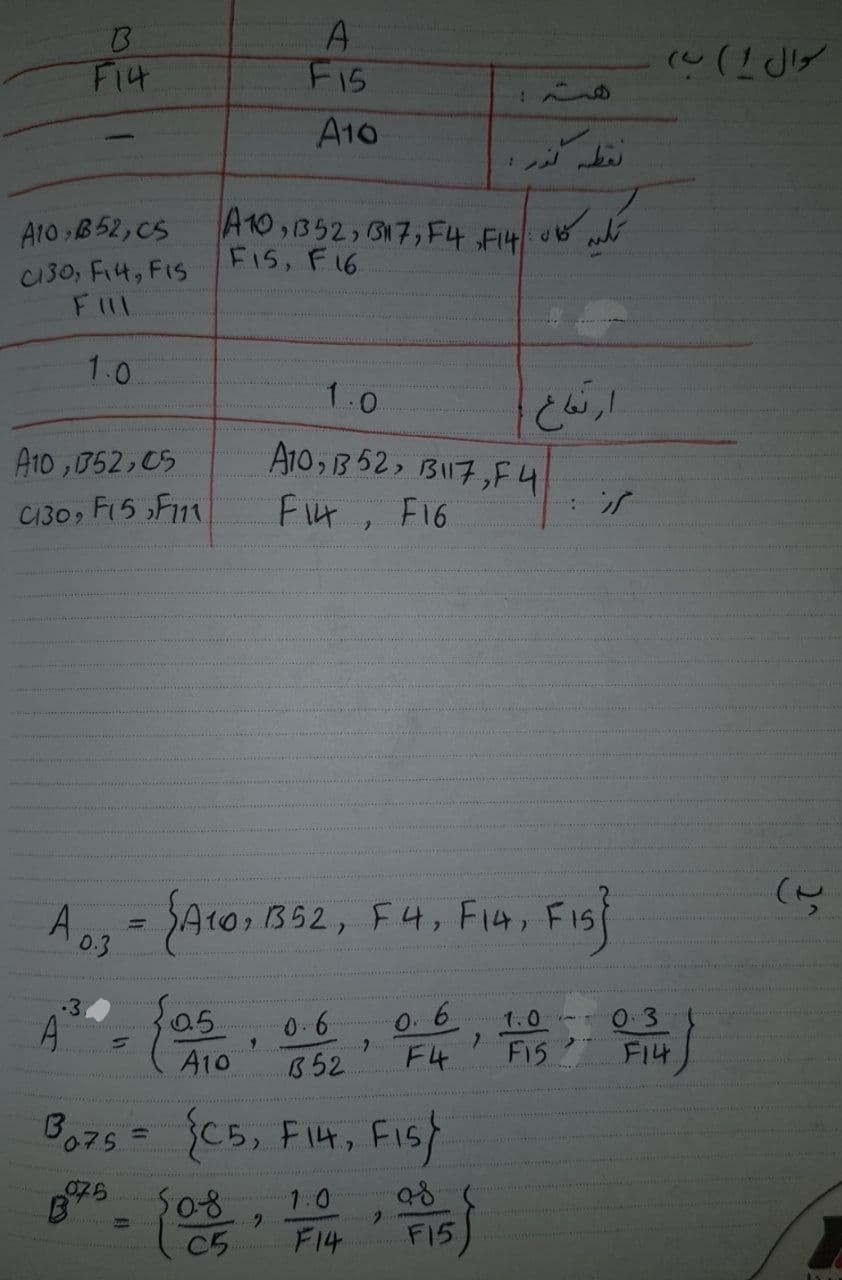 سوال 1) ب)
A B
هسته : F15 F14
نقطه گذر : A10 –
تکیه گاه : A10, B52, B117, F4, F14 A10, B52, C5
F15, F16 C130, F14, F15
F111
ارتفاع 1.0 1.0
مرز : A10, B52, B117, F4 A10, B52, C5
F14, F16 C130, F15, F111
پ)
A0.3 = {A10, B52, F4, F14, F15}
A^.3 = {0.5/A10, 0.6/B52, 0.6/F4, 1.0/F15, 0.3/F14}
B075 = {C5, F14, F15}
B^075 = {0.8/C5, 1.0/F14, 0.8/F15}